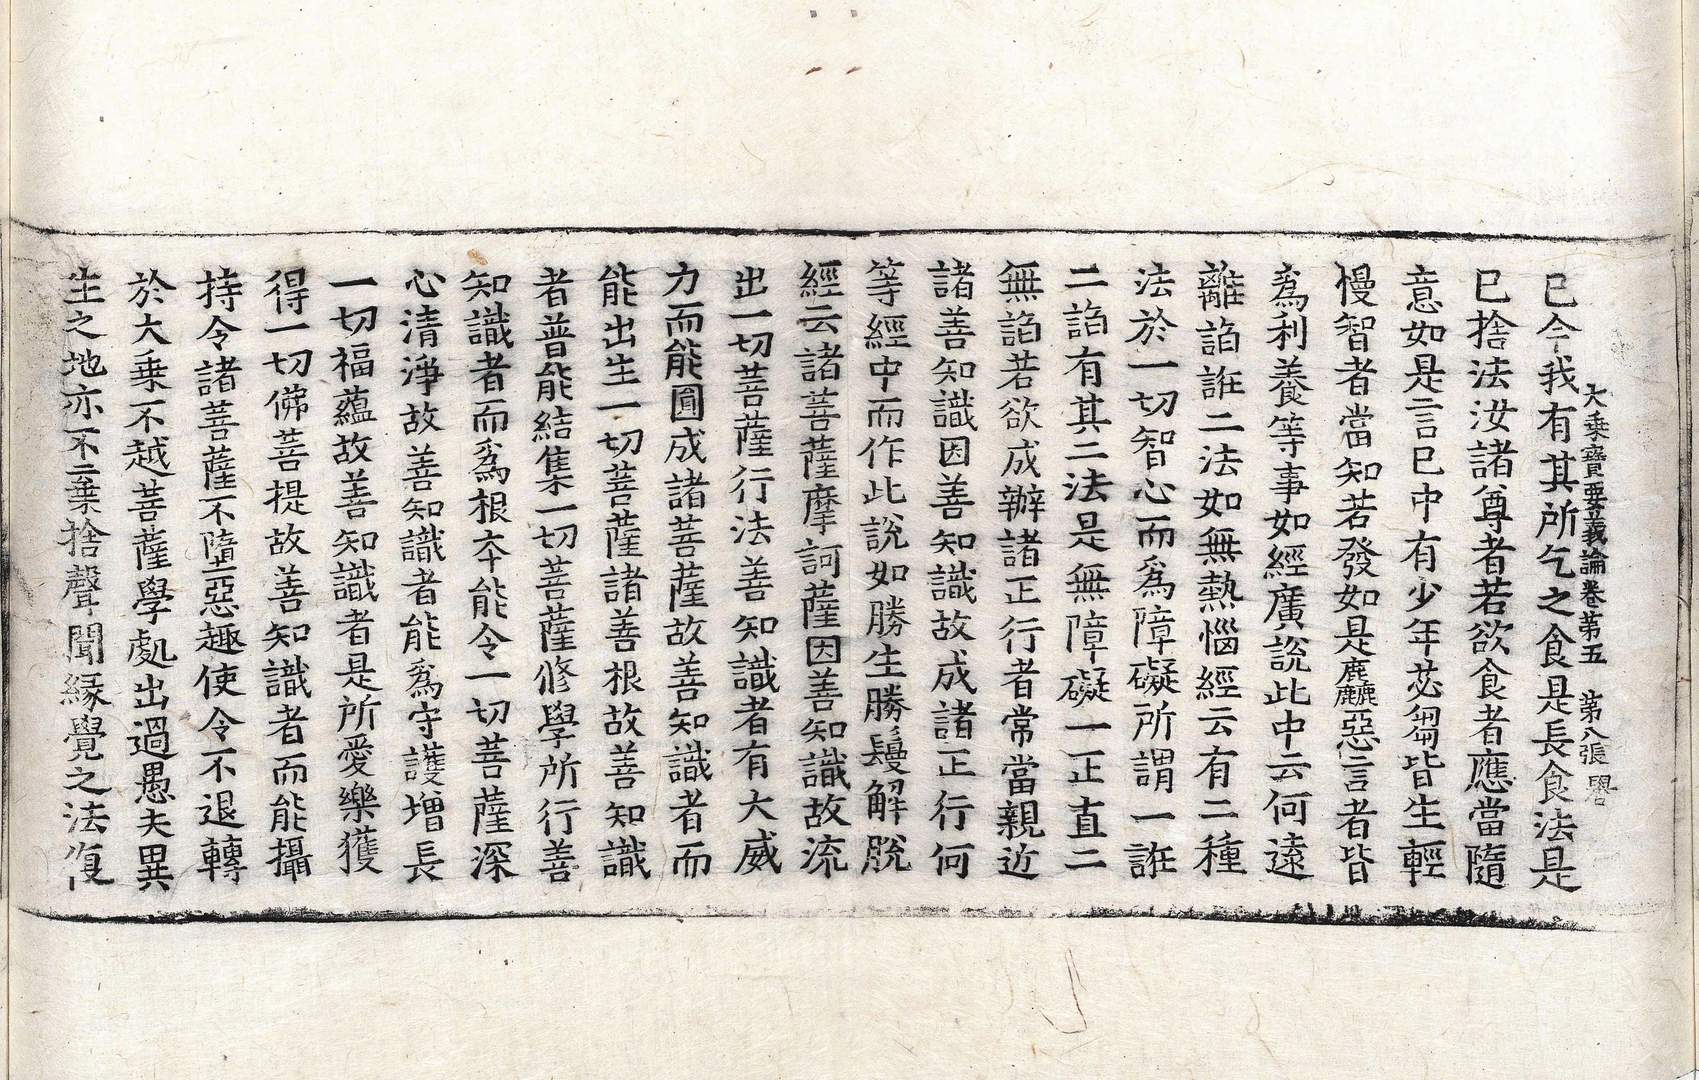 大乘寶要義論卷第五　第八張　罌
已今我有其所乞之食是長食法是
已捨法汝諸尊者若欲食者應當隨
意如是言已中有少年苾芻皆生輕
慢智者當知若發如是麤惡言者皆
爲利養等事如經廣說此中云何遠
離諂誑二法如無熱惱經云有二種
法於一切智心而爲障礙所謂一誑
二諂有其二法是無障礙一正直二
無諂若欲成辦諸正行者常當親近
諸善知識因善知識故成諸正行何
等經中而作此說如勝生勝鬘解脫
經云諸菩薩摩訶薩因善知識故流
出一切菩薩行法善知識者有大威
力而能圓成諸菩薩故善知識者而
能出生一切菩薩諸善根故善知識
者普能結集一切菩薩修學所行善
知識者而爲根本能令一切菩薩深
心清淨故善知識者能爲守護增長
一切福蘊故善知識者是所愛樂獲
得一切佛菩提故善知識者而能攝
持令諸菩薩不墮惡趣使令不退轉
於大乘不越菩薩學處出過愚夫異
生之地亦不棄捨聲聞緣覺之法復